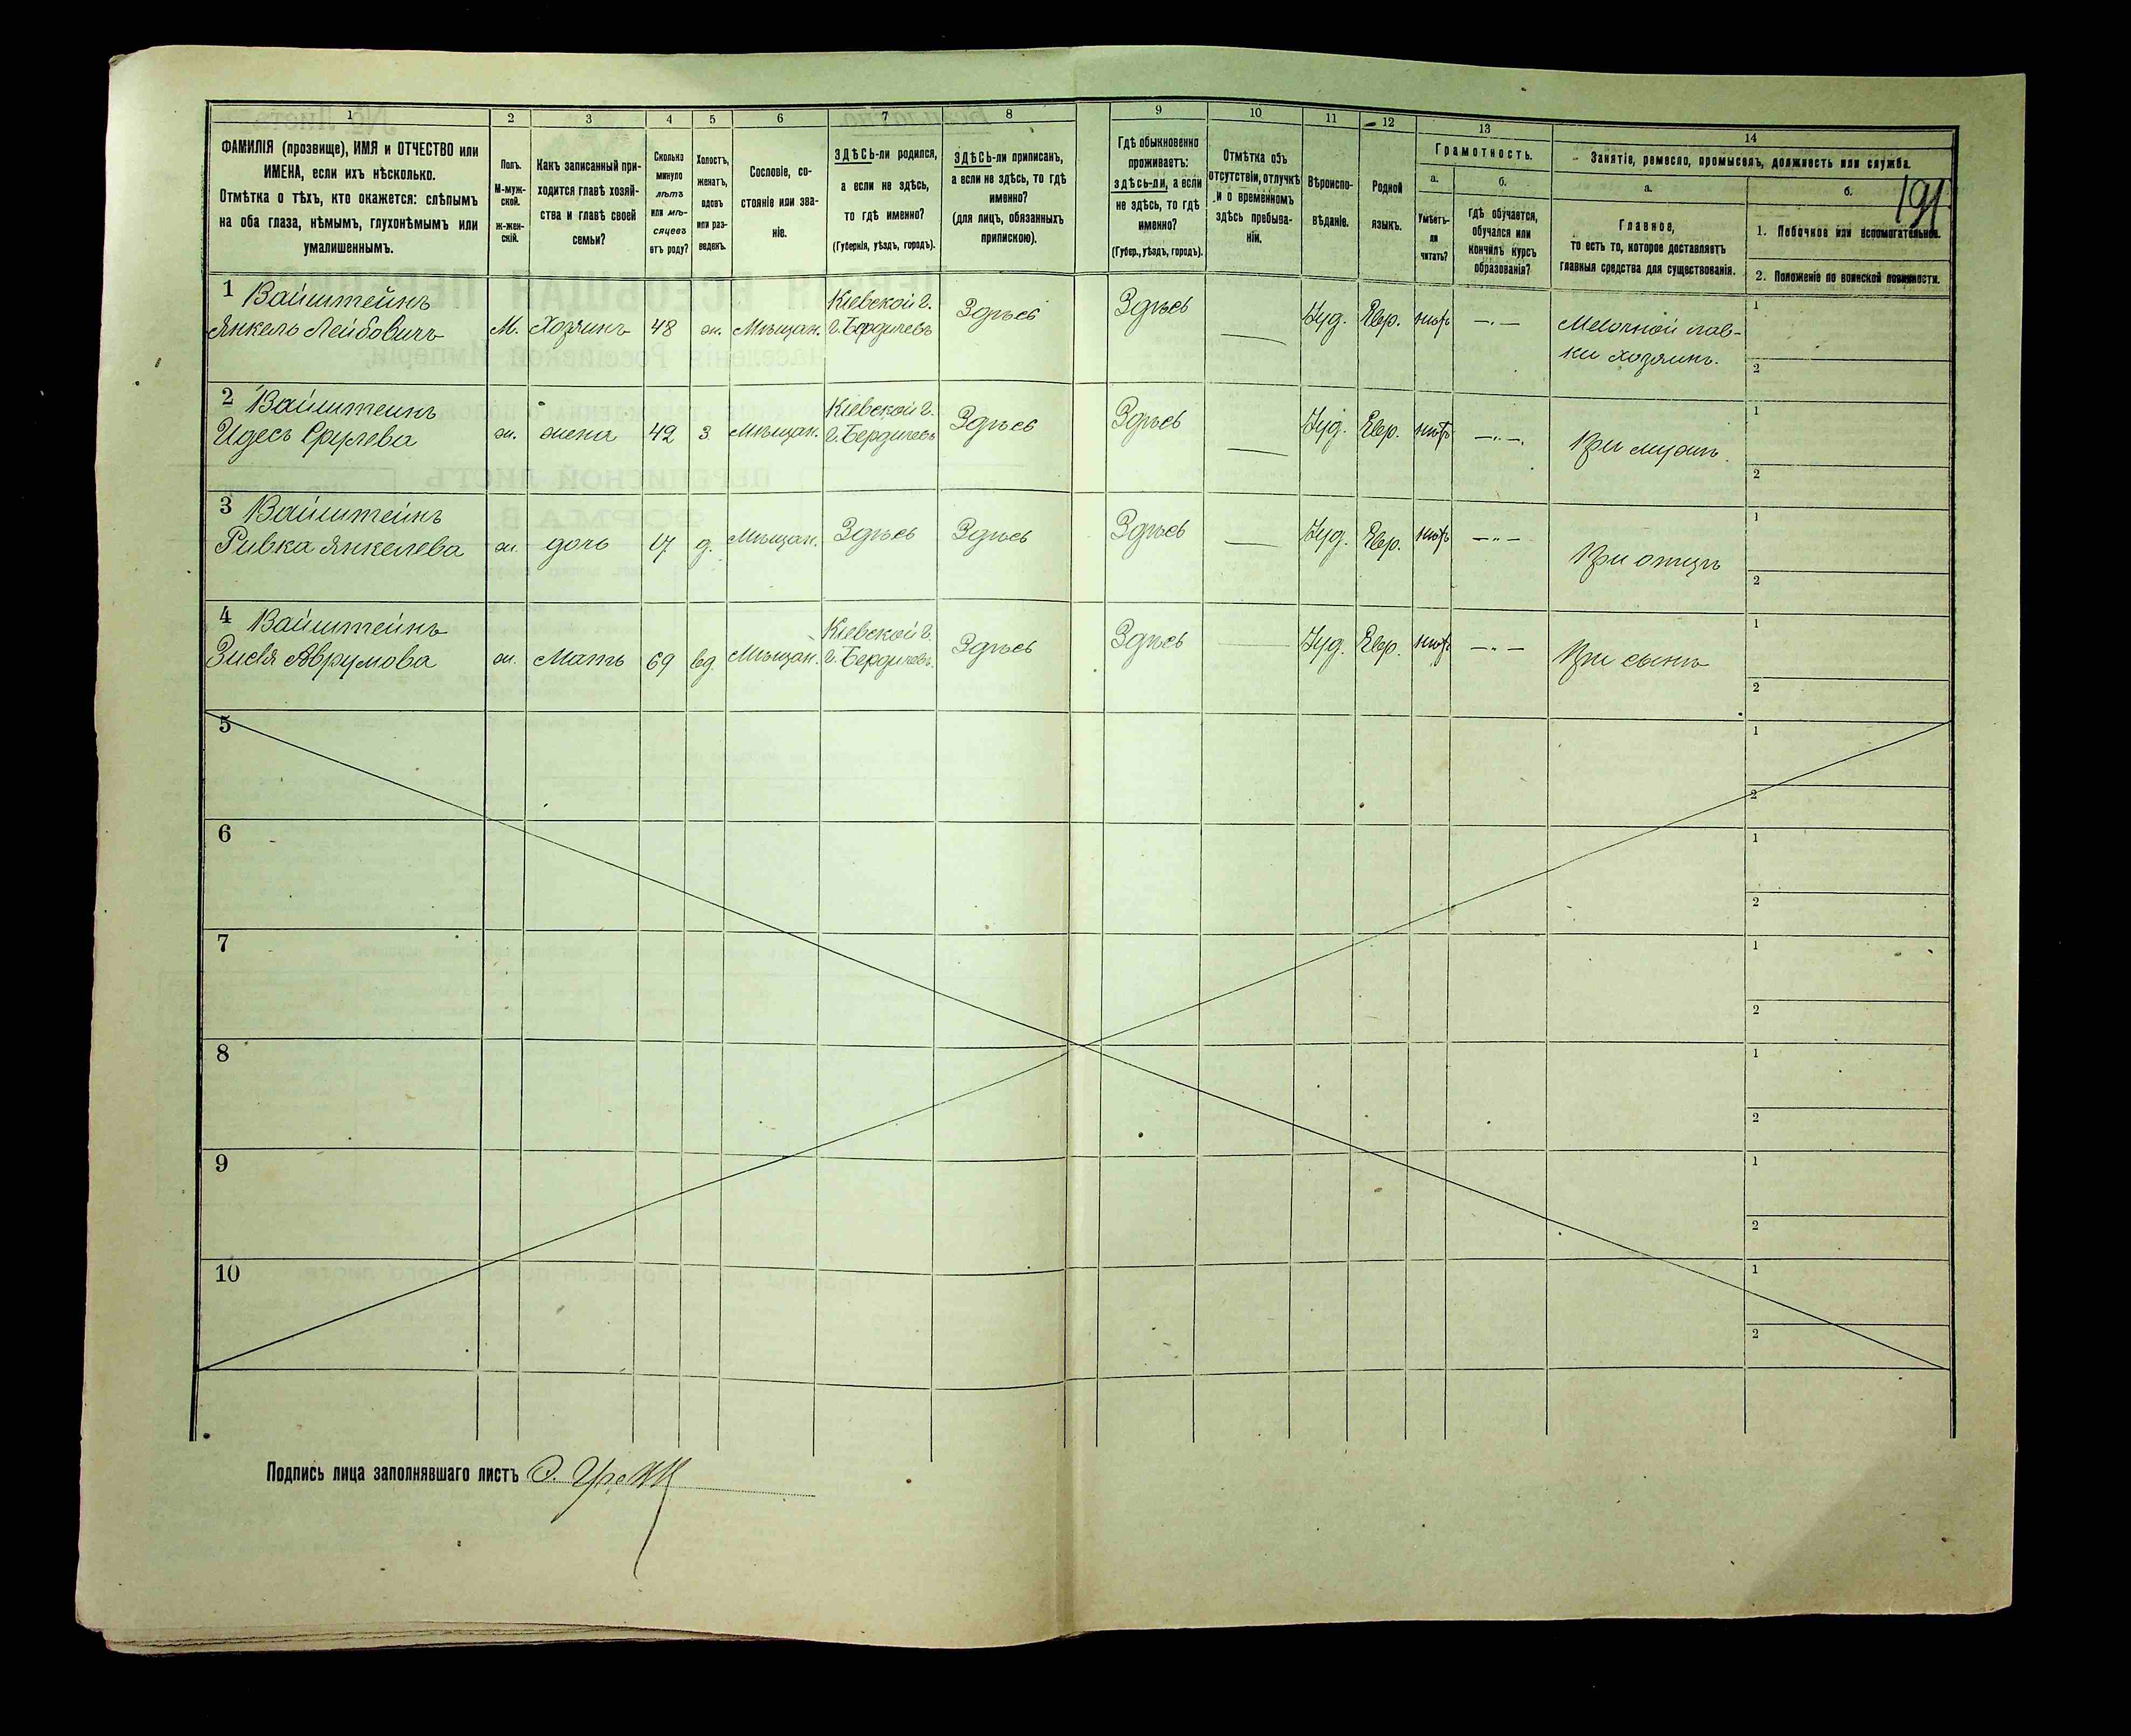 1
2
3
4
5
6
7
8
9
10
11
12
13
14
ФАМИЛІЯ (прозвище), ИМЯ и ОТЧЕСТВО или
ИМЕНА, если ихъ нѣсколько.
Отмѣтка о тѣхъ, кто окажется: слѣпымъ
на оба глаза, нѣмымъ, глухонѣмымъ или
умалишеннымъ.
Полъ.
М-муж-
ской.
ж-жен-
скій.
Какъ записанный при-
ходится главѣ хозяй-
ства и главѣ своей
семьи?
Сколько
минуло
лѣтъ
или мѣ-
сяцевъ
отъ роду?
Холостъ,
женатъ,
вдовъ
или раз-
веденъ.
Сословіе, со-
стояніе или зва-
ніе.
ЗДѢСЬ-ли родился,
а если не здѣсь,
то гдѣ именно?
(Губернія, уѣздъ, городъ).
ЗДѢСЬ-ли приписанъ,
а если не здѣсь, то гдѣ
именно?
(для лицъ, обязанныхъ
припискою).
Гдѣ обыкновенно
проживаетъ:
здѣсь-ли, а если
не здѣсь, то гдѣ
именно?
(Губер., уѣздъ, городъ).
Отмѣтка объ
отсутствіи, отлучкѣ
и о временномъ
здѣсь пребыва-
ніи.
Вѣроиспо-
вѣданіе.
Родной
языкъ.
Грамотность.
а.
б.
Умѣетъ-
ли
читать?
Гдѣ обучается,
обучался или
кончилъ курсъ
образованія?
Занятіе, ремесло, промыселъ, должность или служба.
а.
б.
Главное,
то есть то, которое доставляетъ
главныя средства для существованія.
1. Побочное или вспомогательное.
2. Положеніе по воинской повинности.
191
1 Вайнштейнъ
Янкель Лейбовичъ
М. Хозяинъ 48 ж. Мѣщан.
Кіевской г.
г. Бердичевъ
Здѣсь
Здѣсь
— Іуд. Евр. нѣтъ —.—
Мелочной лав-
ки хозяинъ.
1
2
2 Вайнштейнъ
Идесъ Срулева
ж. жена 42 з. Мѣщан.
Кіевской г.
г. Бердичевъ
Здѣсь
Здѣсь
— Іуд. Евр. нѣтъ —„—.
При мужѣ.
1
2
3 Вайнштейнъ
Ривка Янкелева
ж. дочь 17 д. Мѣщан. Здѣсь Здѣсь
Здѣсь
— Іуд. Евр. нѣтъ —„—
При отцѣ
1
2
4 Вайнштейнъ
Зисля Аврумова
ж. Мать 69 вд. Мѣщан.
Кіевской г.
г. Бердичевъ.
Здѣсь
Здѣсь
— Іуд. Евр. нѣтъ —„—
При сынѣ
1
2
5
1
2
6
1
2
7
1
2
8
1
2
9
1
2
10
1
2
Подпись лица заполнявшаго листъ